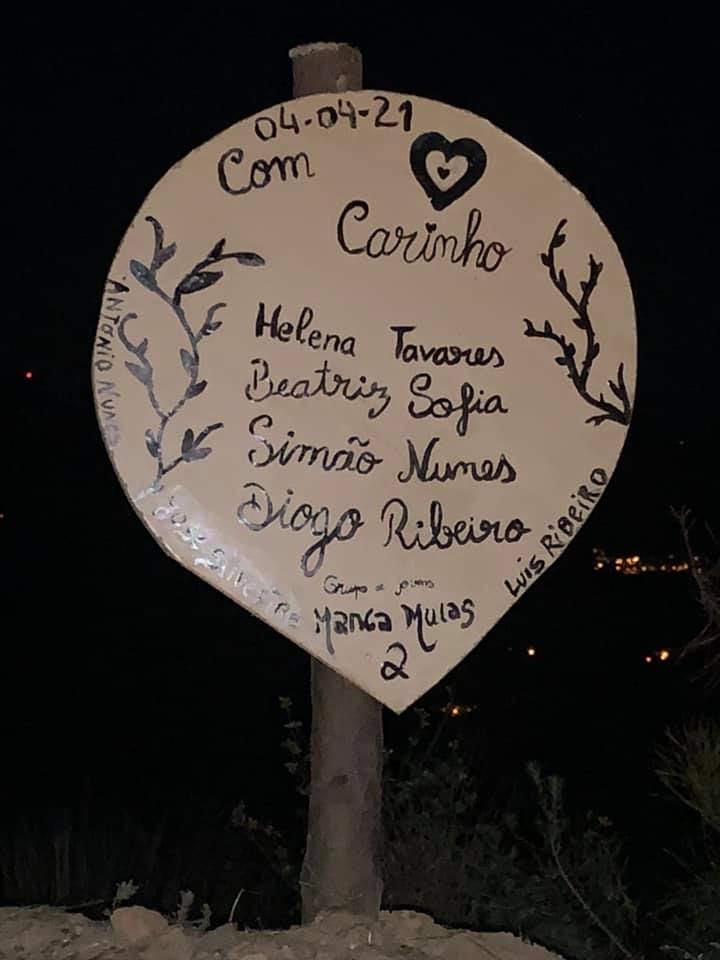 04-04-21
Com
Carinho
Helena Tavares
Beatriz Sofia
Simão Nunes
Diogo Ribeiro
Grupo de jovens
Manca Mulas
2
ANTONIO NUNES
JOSE SILVESTRE
LUIS RIBEIRO